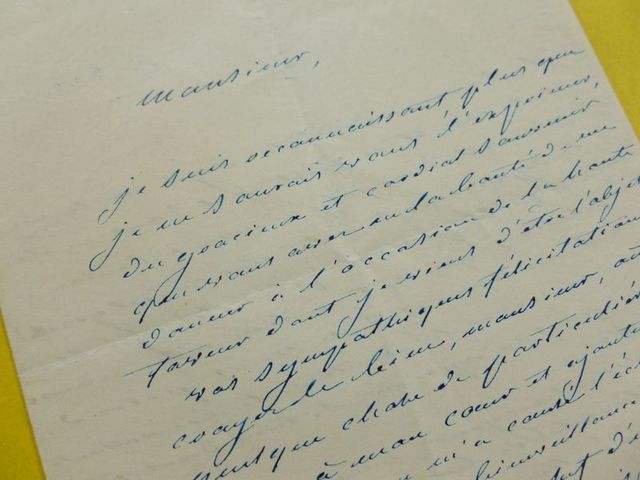 Monsieur,
je suis reconnaissant plus que
je ne saurais vous l'exprimer,
du gracieux et cordial souvenir
que vous avez eu la bonté de me
donner à l'occasion de la haute
faveur dont je viens d'être l'objet
vos sympathiques félicitations
croyez le bien, monsieur, ont
quelque chose de particulière
à mon cœur et ajoute
m'a causé l'
bienveillance